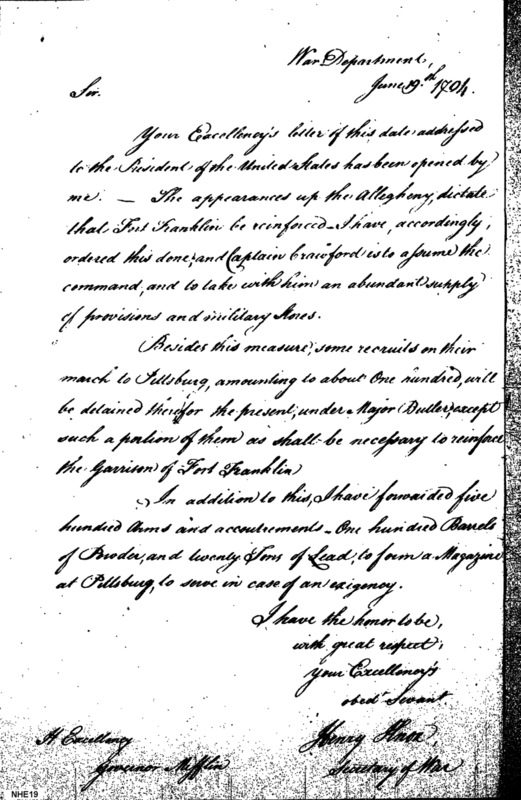 War Department,
June 19th 1794.
Sir.
Your Excellency's letter of this date addressed
to the President of the United States has been opened by
me. — The appearances up the Allegheny, dictate
that Fort Franklin be reinforced — I have, accordingly,
ordered this done; and Captain Crawford is to assume the
command, and to take with him an abundant supply
of provisions and military Stores.
Besides this measure, some recruits on their
march to Pittsburg, amounting to about One hundred, will
be detained there for the present, under Major Butler, except
such a portion of them as shall be necessary to reinforce
the Garrison of Fort Franklin
In addition to this, I have forwarded five
hundred Arms and accoutrements — One hundred Barrels
of Powder, and twenty Tons of Lead, to form a Magazine
at Pittsburg, to serve in case of an exigency.
I have the honor to be,
with great respect,
Your Excellency's
obedt Servant
Henry Knox,
Secretary of War
H Excellency
Governor Mifflin
NHE19